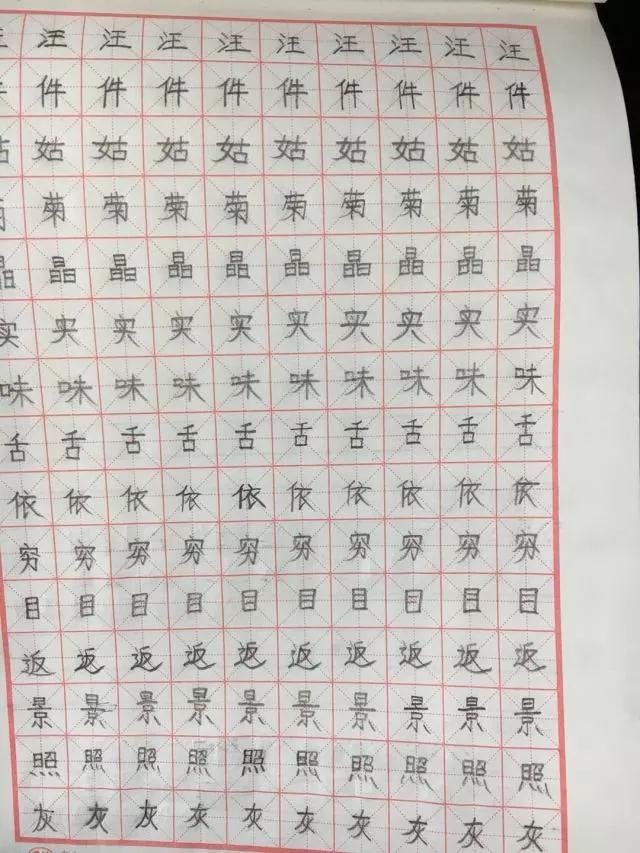 汪汪汪汪汪汪汪汪汪汪
件件件件件件件件件件
姑姑姑姑姑姑姑姑姑姑
菊菊菊菊菊菊菊菊菊菊
晶晶晶晶晶晶晶晶晶晶
实实实实实实实实实实
味味味味味味味味味味
舌舌舌舌舌舌舌舌舌舌
依依依依依依依依依依
穷穷穷穷穷穷穷穷穷穷
目目目目目目目目目目
返返返返返返返返返返
景景景景景景景景景景
照照照照照照照照照照
灰灰灰灰灰灰灰灰灰灰